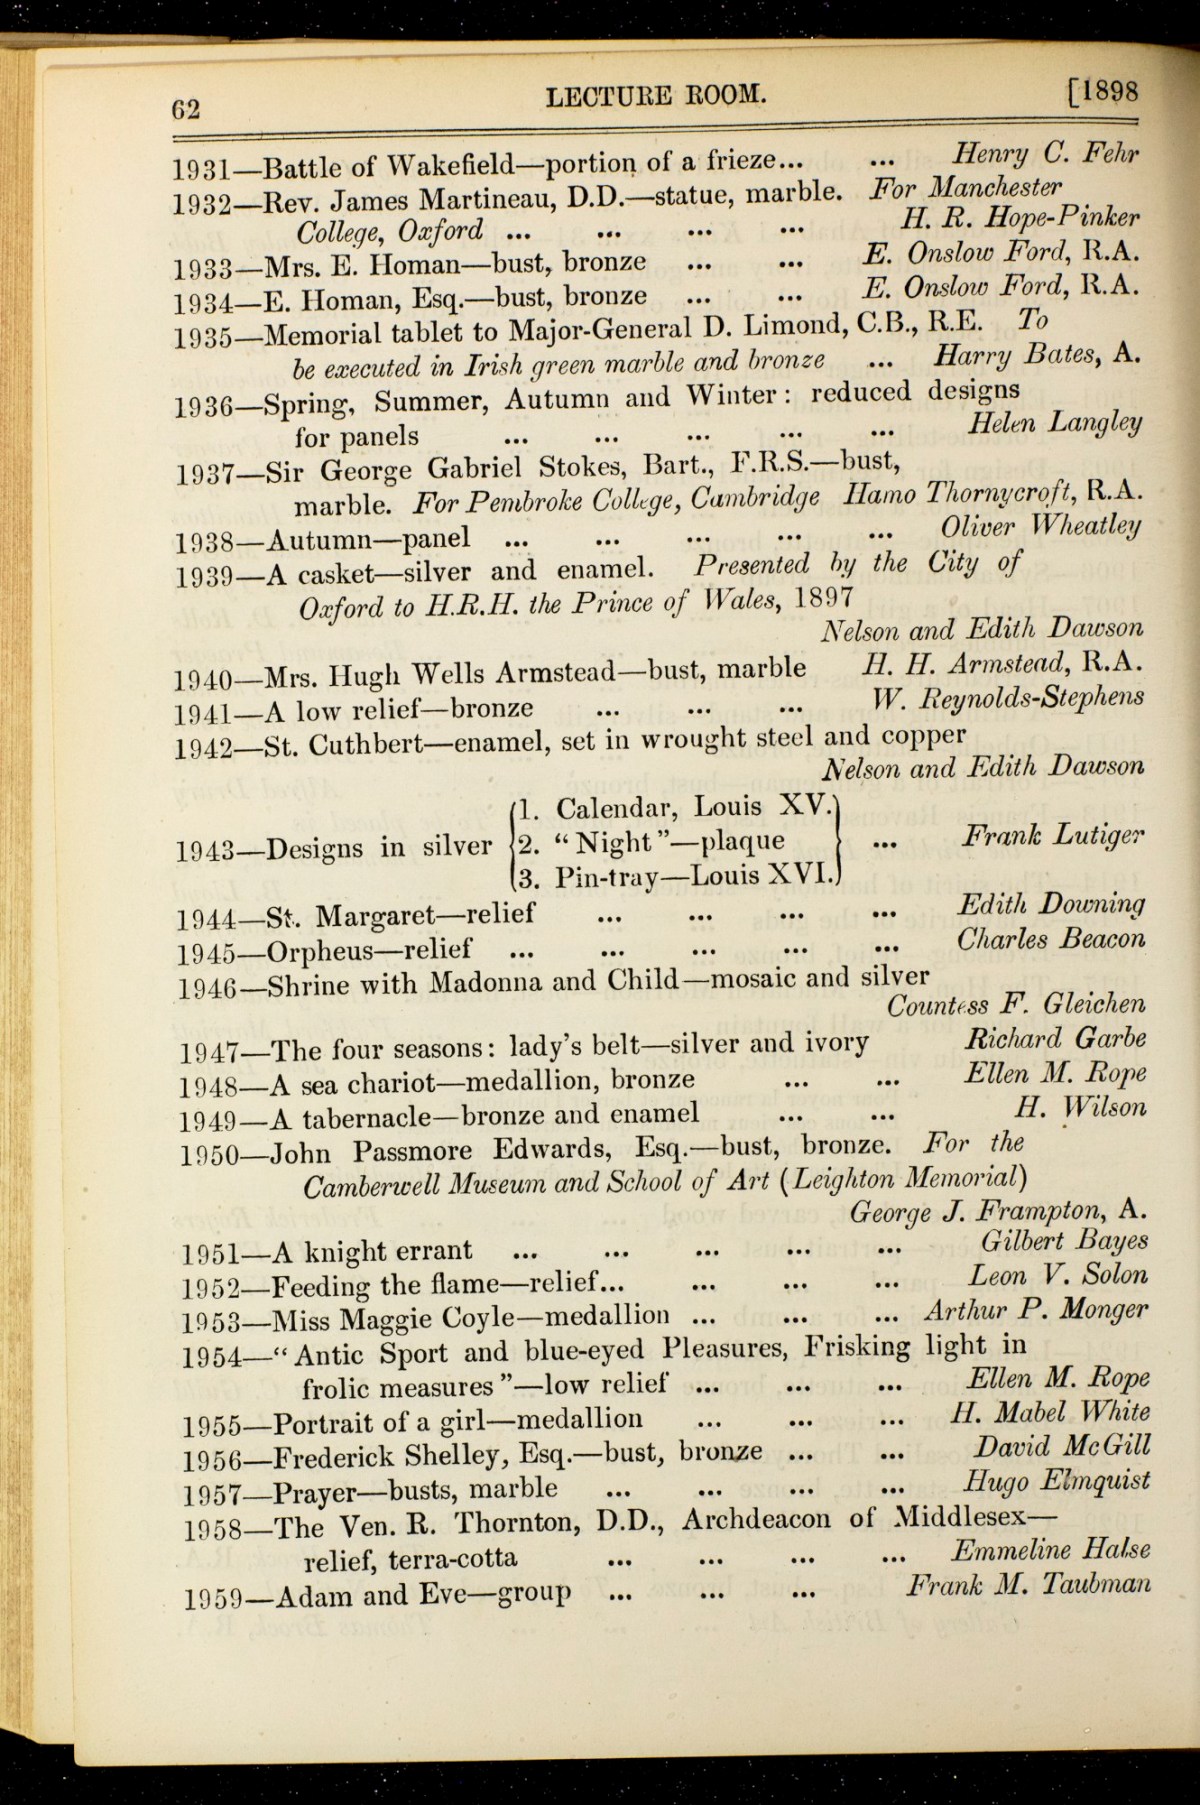 62 LECTURE ROOM. [1898
1931—Battle of Wakefield—portion of a frieze... ... Henry C. Fehr
1932—Rev. James Martineau, D.D.—statue, marble. For Manchester
College, Oxford ... ... ... ... H. R. Hope-Pinker
1933—Mrs. E. Homan—bust, bronze ... ... E. Onslow Ford, R.A.
1934—E. Homan, Esq.—bust, bronze ... ... E. Onslow Ford, R.A.
1935—Memorial tablet to Major-General D. Limond, C.B., R.E. To
be executed in Irish green marble and bronze ... Harry Bates, A.
1936—Spring, Summer, Autumn and Winter: reduced designs
for panels ... ... ... ... ... Helen Langley
1937—Sir George Gabriel Stokes, Bart., F.R.S.—bust,
marble. For Pembroke College, Cambridge Hamo Thornycroft, R.A.
1938—Autumn—panel ... ... ... ... ... Oliver Wheatley
1939—A casket—silver and enamel. Presented by the City of
Oxford to H.R.H. the Prince of Wales, 1897
Nelson and Edith Dawson
1940—Mrs. Hugh Wells Armstead—bust, marble H. H. Armstead, R.A.
1941—A low relief—bronze ... ... ... W. Reynolds-Stephens
1942—St. Cuthbert—enamel, set in wrought steel and copper
Nelson and Edith Dawson
1. Calendar, Louis XV.
1943—Designs in silver 2. "Night"—plaque ... Frank Lutiger
3. Pin-tray—Louis XVI.
1944—St. Margaret—relief ... ... ... ... Edith Downing
1945—Orpheus—relief ... ... ... ... ... Charles Beacon
1946—Shrine with Madonna and Child—mosaic and silver
Countess F. Gleichen
1947—The four seasons: lady's belt—silver and ivory Richard Garbe
1948—A sea chariot—medallion, bronze ... ... Ellen M. Rope
1949—A tabernacle—bronze and enamel ... ... H. Wilson
1950—John Passmore Edwards, Esq.—bust, bronze. For the
Camberwell Museum and School of Art (Leighton Memorial)
George J. Frampton, A.
1951—A knight errant ... ... ... ... ... Gilbert Bayes
1952—Feeding the flame—relief... ... ... ... Leon V. Solon
1953—Miss Maggie Coyle—medallion ... ... ... Arthur P. Monger
1954—"Antic Sport and blue-eyed Pleasures, Frisking light in
frolic measures"—low relief ... ... ... Ellen M. Rope
1955—Portrait of a girl—medallion ... ... ... H. Mabel White
1956—Frederick Shelley, Esq.—bust, bronze ... ... David McGill
1957—Prayer—busts, marble ... ... ... ... Hugo Elmquist
1958—The Ven. R. Thornton, D.D., Archdeacon of Middlesex—
relief, terra-cotta ... ... ... ... Emmeline Halse
1959—Adam and Eve—group ... ... ... Frank M. Taubman